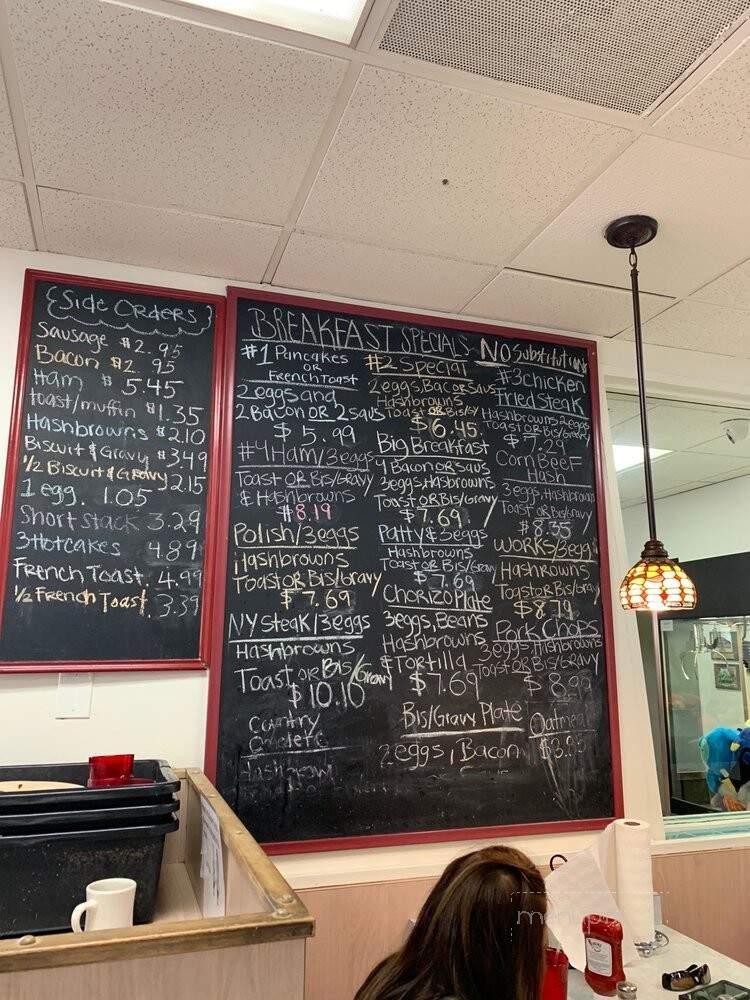 Side Orders
Sausage $2.95
Bacon $2.95
Ham $5.45
toast/muffin $1.35
Hashbrowns $2.10
Biscuit & Gravy $3.49
1/2 Biscuit & Gravy 2.15
1 egg. 1.05
Short stack 3.29
3 Hotcakes 4.89
French Toast. 4.99
1/2 French Toast. 3.39
BREAKFAST SPECIALS NO Substitutions
#1 Pancakes
OR
French Toast
2 eggs and
2 Bacon OR 2 saus
$5.99
#4 Ham/3 eggs
Toast OR Bis/Gravy
& Hashbrowns
$8.19
Polish/3 eggs
Hashbrowns
Toast OR Bis/Gravy
$7.69
NY steak/3 eggs
Hashbrowns
Toast OR Bis/Gravy
$10.10
Country
#2 Special
2 eggs, Bac OR Saus
Hashbrowns
Toast OR Bis/Gy
$6.45
Big Breakfast
4 Bacon OR saus
3 eggs, Hashbrowns
Toast OR Bis/Gravy
$7.69
Patty & 3 eggs
Hashbrowns
Toast OR Bis/Gravy
$7.69
Chorizo Plate
3 eggs, Beans
Hashbrowns
& Tortilla
$7.69
Bis/Gravy Plate
2 eggs, Bacon
#3 chicken
fried steak
Hashbrowns 2 eggs
Toast OR Bis/Gravy
$7.29
Corn Beef
Hash
3 eggs, Hashbrowns
Toast OR Bis/Gravy
$8.35
Works/3 eggs
Hashrowns
Toast OR Bis/Gravy
$8.79
Pork Chops
3 eggs Hashbrowns
Toast OR Bis/Gravy
Oatmeal